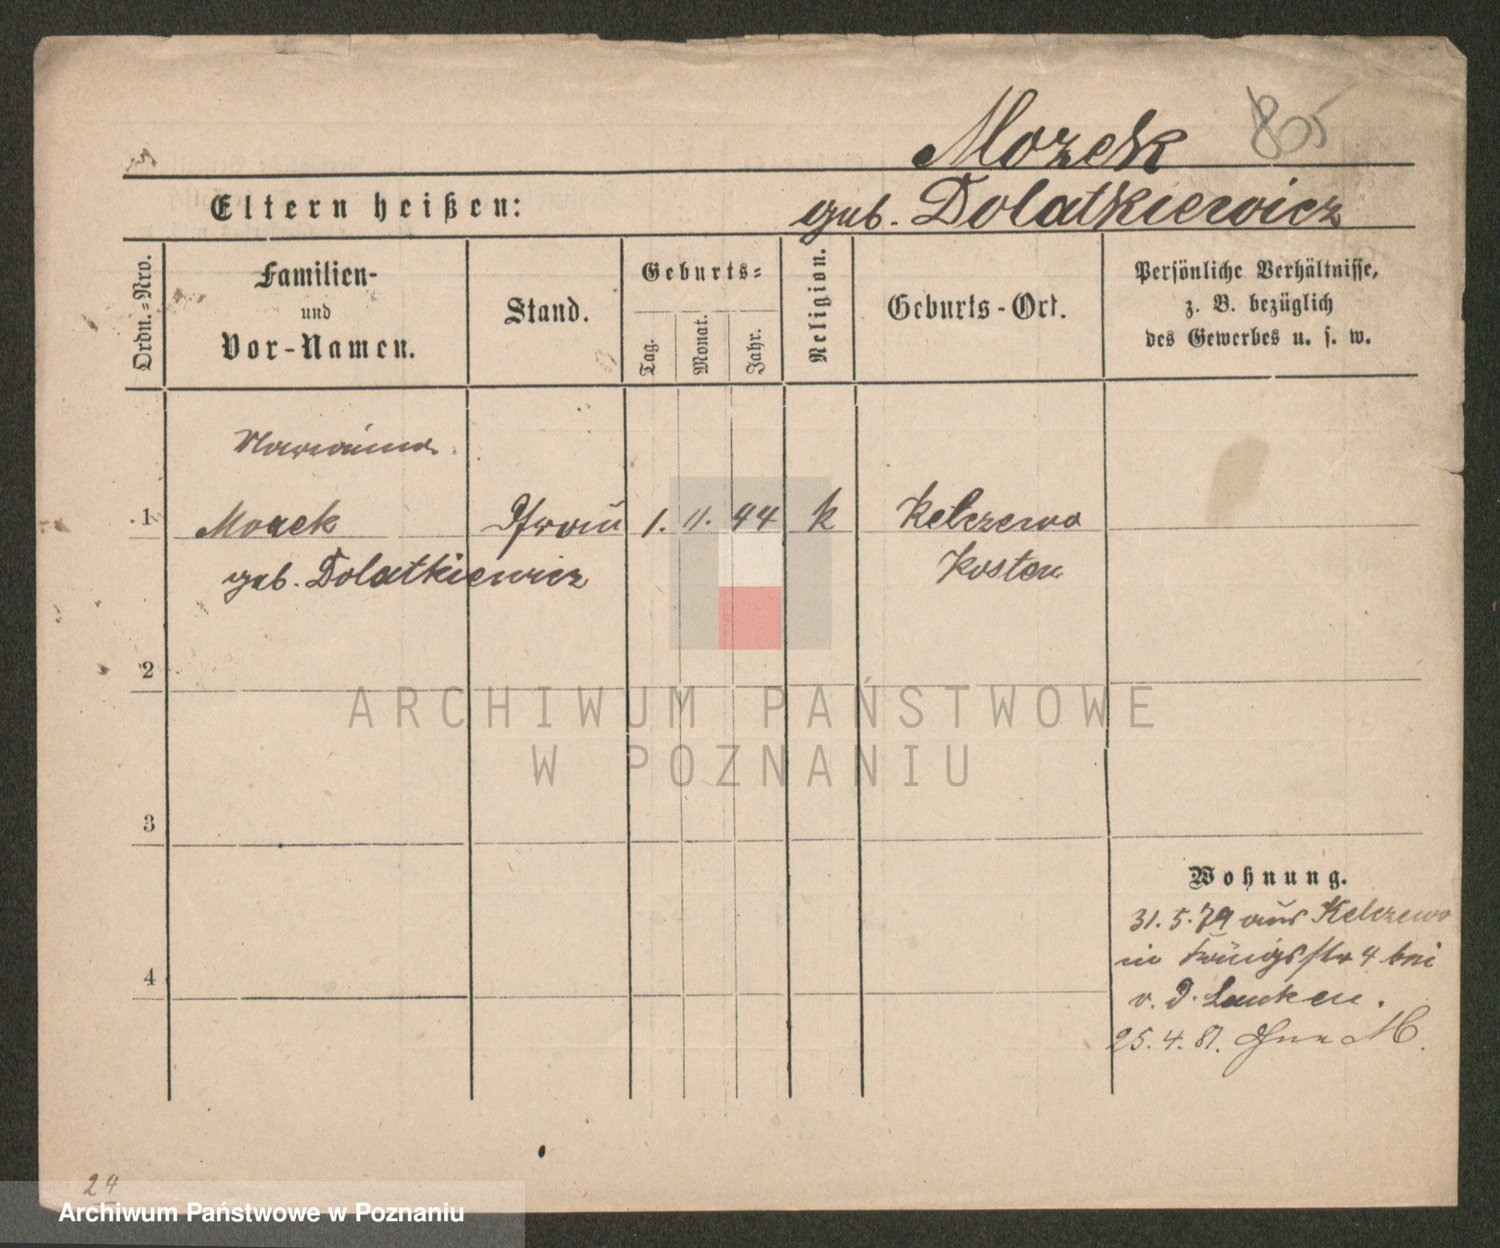 Mozek 85
Eltern heißen:
geb. Dolatkiewicz
Ordn.-Nro.
Familien-
und
Vor-Namen.
Stand.
Geburts-
Tag.
Monat.
Jahr.
Religion.
Geburts-Ort.
Persönliche Verhältnisse,
z. B. bezüglich
des Gewerbes u. s. w.
Marianna
1 Mozek Frau 1. 11. 44 k Kelczewo
geb. Dolatkiewicz Kosten
2
ARCHIWUM PAŃSTWOWE
W POZNANIU
3
Wohnung.
31. 5. 79 aus Kelczewo
in Königsstr 4 bei
v. d. Lanken.
4
25. 4. 81. M.
24
Archiwum Państwowe w Poznaniu